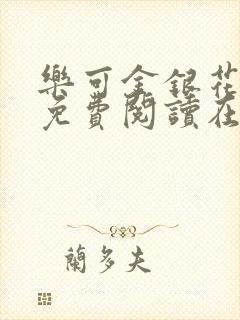 樂可金銀花
免費閱讀在
蘭多夫